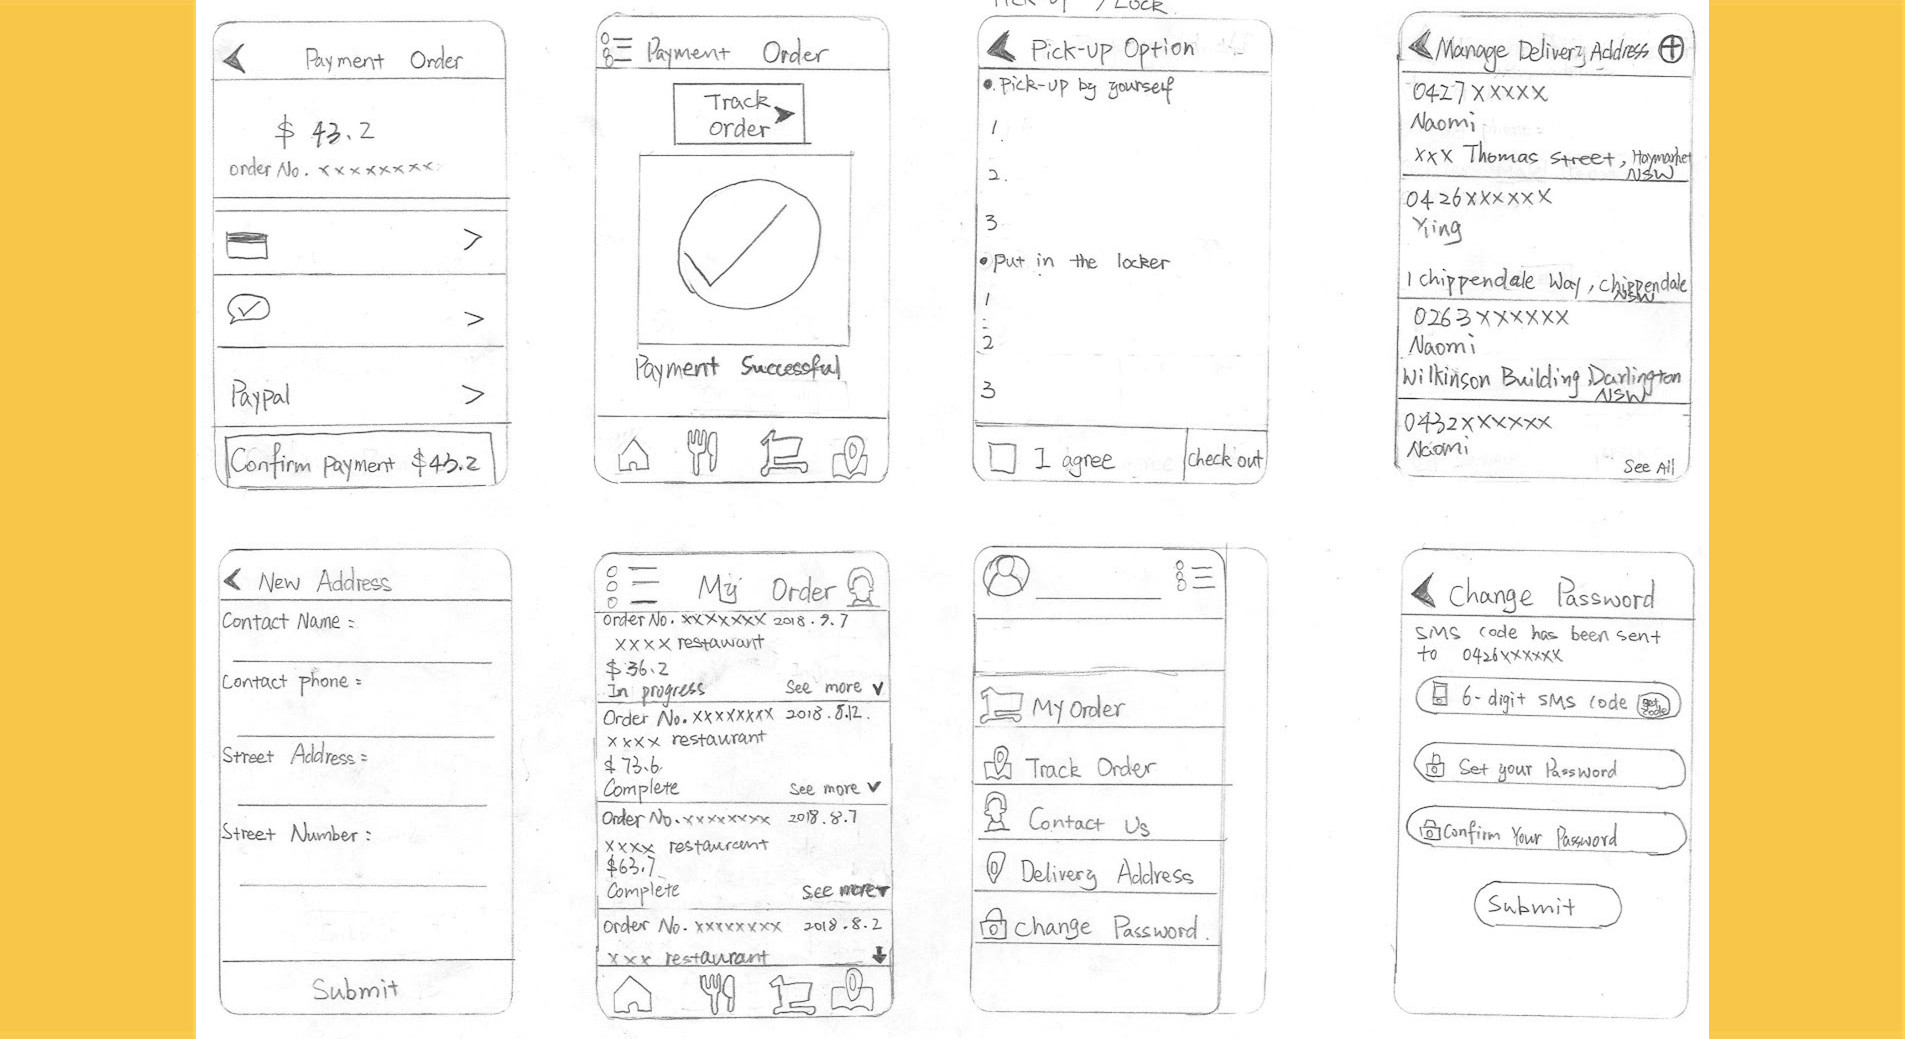 Pick-up / Lock
Payment Order
$ 43.2
order No. xxxxxxxxx
>
>
Paypal >
Confirm payment $43.2
Payment Order
Track
order
Payment Successful
Pick-up Option
• Pick-up by yourself
1.
2.
3
• Put in the locker
1
2
3
I agree
check out
Manage Delivery Address
0427xxxxx
Naomi
xxx Thomas street, Haymarket
NSW
0426xxxxxx
Ying
1 chippendale Way, chippendale
NSW
0263xxxxxx
Naomi
Wilkinson Building, Darlington
NSW
0432xxxxxx
Naomi
See All
New Address
Contact Name :
Contact phone :
Street Address :
Street Number :
Submit
My Order
Order No. xxxxxxx 2018.9.7
xxxx restaurant
$36.2
In progress See more
Order No. xxxxxxxx 2018.8.12.
xxxx restaurant
$73.6
Complete See more
Order No. xxxxxxxx 2018.8.7
xxxx restaurant
$63.7
Complete See more
Order No. xxxxxxxx 2018.8.2
xxx restaurant
My Order
Track Order
Contact Us
Delivery Address
Change Password.
Change Password
SMS code has been sent
to 0426xxxxxx
6-digit SMS code get
code
Set your Password
Confirm Your Password
Submit